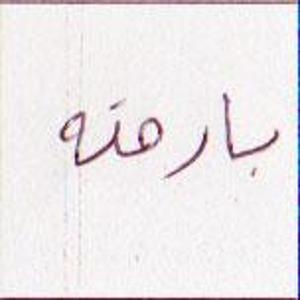 بارهنه